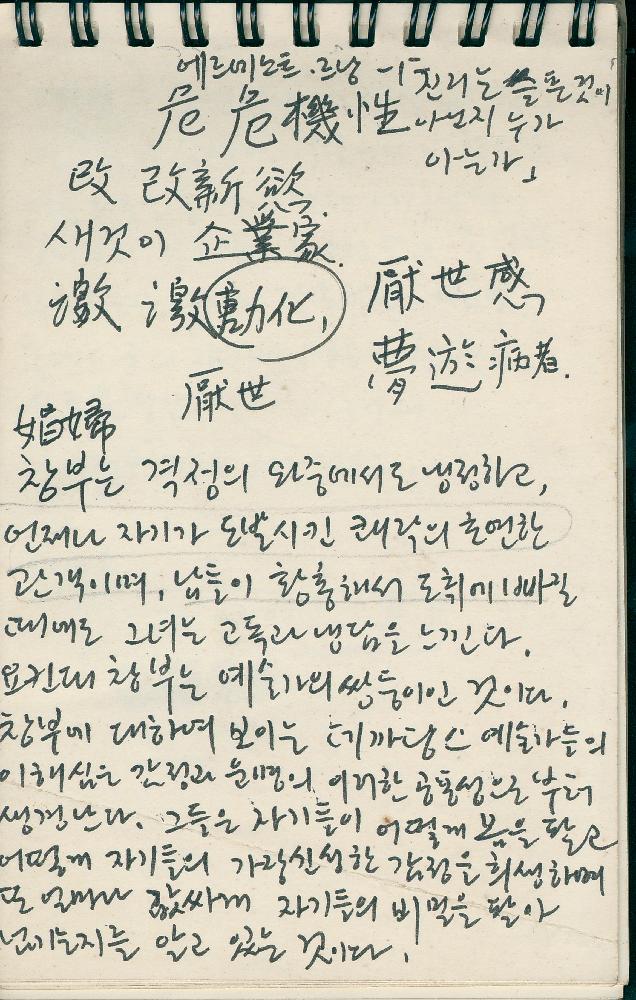 에르네스트.르낭 ─「진리는 슬픈 것이
危 危機性 아닌지 누가
아는가」
改 改新慾
새것이 企業家.
激 激動化, 厭世感
夢遊病者.
厭世
娼婦
창부는 격정의 와중에서도 냉정하고,
언제나 자기가 도발시킨 쾌락의 초연한
관객이며, 남들이 황홀해서 도취에 빠질
때에도 그녀는 고독과 냉담을 느낀다.
요컨대 창부는 예술가의 쌍둥이인 것이다.
창부에 대하여 보이는 데까당스 예술가들의
이해심은 감정과 운명의 이러한 공통성으로부터
생겨난다. 그들은 자기들이 어떻게 몸을 팔고
어떻게 자기들의 가장 신성한 감정을 희생하며
또 얼마나 값싸게 자기들의 비밀을 팔아
넘기는지를 알고 있는 것이다.